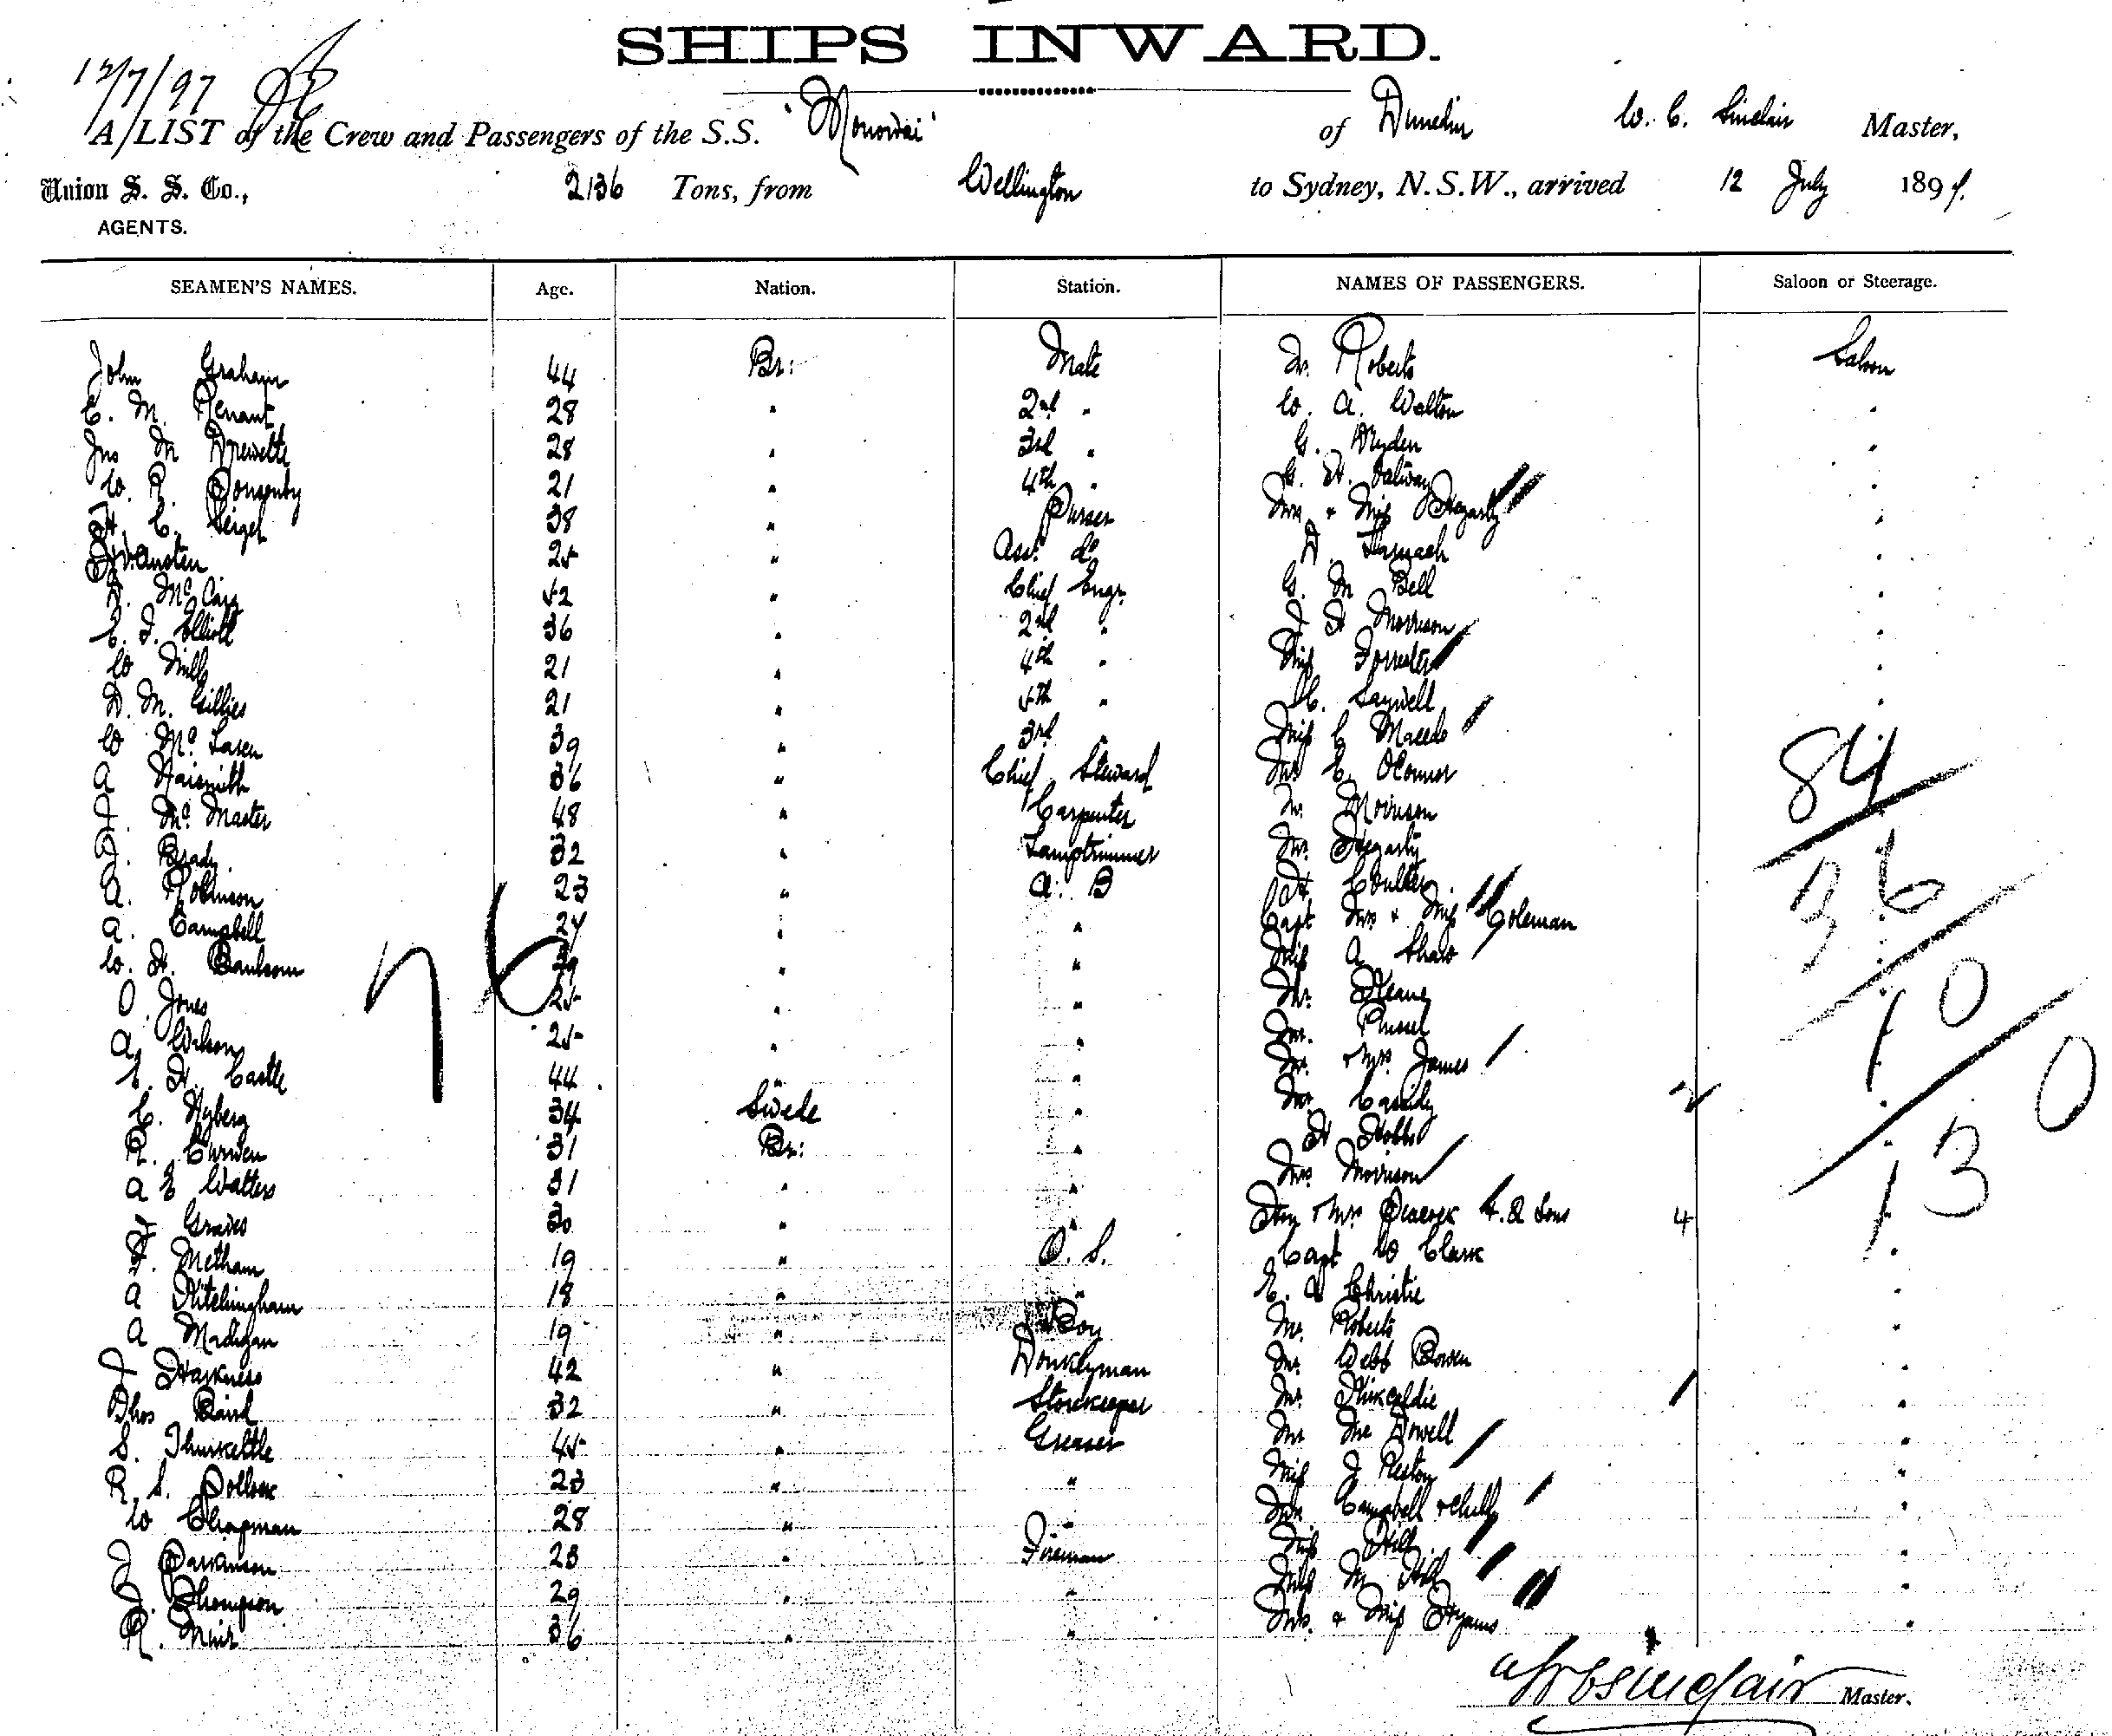 SHIPS INWARD.
12/7/97
A LIST of the Crew and Passengers of the S.S. 'Monowai' of Dunedin W. C. Sinclair Master,
Union S. S. Co., 2136 Tons, from Wellington to Sydney, N.S.W., arrived 12 July 1897.
AGENTS.
SEAMEN'S NAMES. Age. Nation. Station. NAMES OF PASSENGERS. Saloon or Steerage.
John Graham 44 Br: Mate Mr. Roberts Saloon
C. M. Renaut 28 " 2nd " W. A. Walton "
Jno M Drewette 28 " 3rd " G. Dryden "
W. R. Ponsonby 21 " 4th " G. H. Galway "
H. C. Seigel 38 " Purser Mrs & Miss Hegarty "
Austen 25 " Asst do "
Mc 52 " Chief Engr. G. M Bell "
C. J. Elliott 36 " 2nd " J H Morrison "
W Mills 21 " 4th " Miss Forrester "
D. M. Gillies 21 " 5th " Saywell "
W Mc Laren 39 " 3rd " Miss C Macedo "
A Naismith 36 " Chief Steward C. O'Connor 84
J. Mc Master 48 " Carpenter Mr. Morrison
J. Brady 32 " Lamptrimmer Mr. Hegarty
A. Robinson 23 " A. B H. Coulter 36
A. Campbell 24 " " Capt Mrs & Miss Coleman
W. H. Paulson 39 " " Miss A Shaw
O. Jones 25 " " Mr. Keane 10
A. Wilson 25 " " Mr. Russel
76
C. H. Castle 44 " " Mr. & Mrs. James
C. Nyberg 34 Swede " Mr. Cassidy 2 0
R. Curwen 31 Br: " H Hobbs "
A E Watters 31 " " Mrs Morrison 13
J Graves 30 " " Hon & Mrs Peacock & Sons 4
F. Metham 19 " O. S. Capt W Clark "
A 18 " " E. A Christie "
A Madigan 19 " Boy Mr. Roberts "
J Harkness 42 " Donkeyman Mr. Webb Bowen "
Thos Baird 32 " Storekeeper Mr. "
S. Thurkettle 45 " Greaser Mr Mc Dowell "
R. S. Pollock 23 " " Miss J "
W Chapman 28 " " Mrs Campbell & Child "
J Parkinson 28 " Fireman Miss Hill "
J. Thompson 29 " " Miss M Hill "
R. Muir 36 " " Mrs. & Miss Hyams "
W C Sinclair Master.